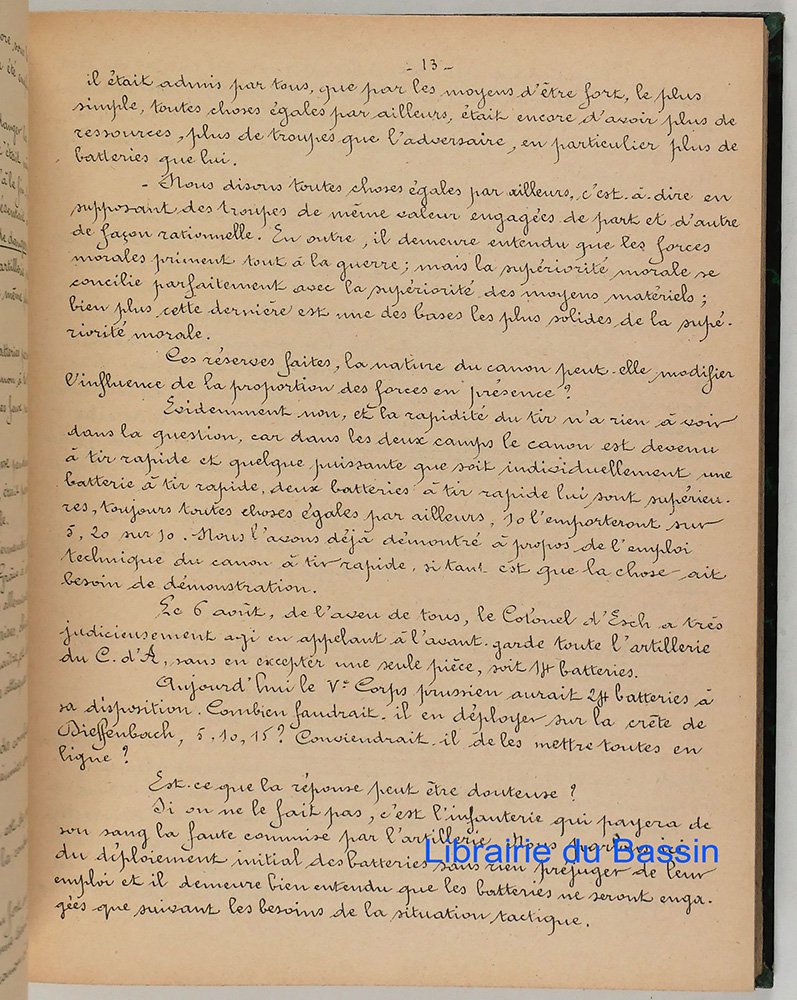 - 13 -
il était admis par tous, que par les moyens d'être fort, le plus
simple, toutes choses égales par ailleurs, était encore d'avoir plus de
ressources, plus de troupes que l'adversaire, en particulier plus de
batteries que lui.
- Nous disons toutes choses égales par ailleurs, c'est-à-dire en
supposant des troupes de même valeur engagées de part et d'autre
de façon rationnelle. En outre, il demeure entendu que les forces
morales priment tout à la guerre ; mais la supériorité morale se
concilie parfaitement avec la supériorité des moyens matériels ;
bien plus cette dernière est une des bases les plus solides de la supé-
riorité morale.
Ces réserves faites, la nature du canon peut-elle modifier
l'influence de la proportion des forces en présence ?
Evidemment non, et la rapidité du tir n'a rien à voir
dans la question, car dans les deux camps le canon est devenu
à tir rapide et quelque puissante que soit individuellement une
batterie à tir rapide, deux batteries à tir rapide lui sont supérieu-
res, toujours toutes choses égales par ailleurs, 10 l'emporteront sur
5, 20 sur 10. Nous l'avons déjà démontré à propos de l'emploi
technique du canon à tir rapide, si tant est que la chose ait
besoin de démonstration.
Le 6 août, de l'aveu de tous, le Colonel d'Esch a très
judicieusement agi en appelant à l'avant-garde toute l'artillerie
du C. d'A, sans en excepter une seule pièce, soit 14 batteries.
Aujourd'hui le Ve Corps prussien aurait 24 batteries à
sa disposition. Combien faudrait-il en déployer sur la crête de
Dieffenbach, 5, 10, 15 ? Conviendrait-il de les mettre toutes en
ligne ?
Est-ce que la réponse peut être douteuse ?
Si on ne le fait pas, c'est l'infanterie qui payera de
son sang la faute commise par l'artillerie. Nous parlons ici
du déploiement initial des batteries sans rien préjuger de leur
emploi et il demeure bien entendu que les batteries ne seront enga-
gées que suivant les besoins de la situation tactique.
Librairie du Bassin